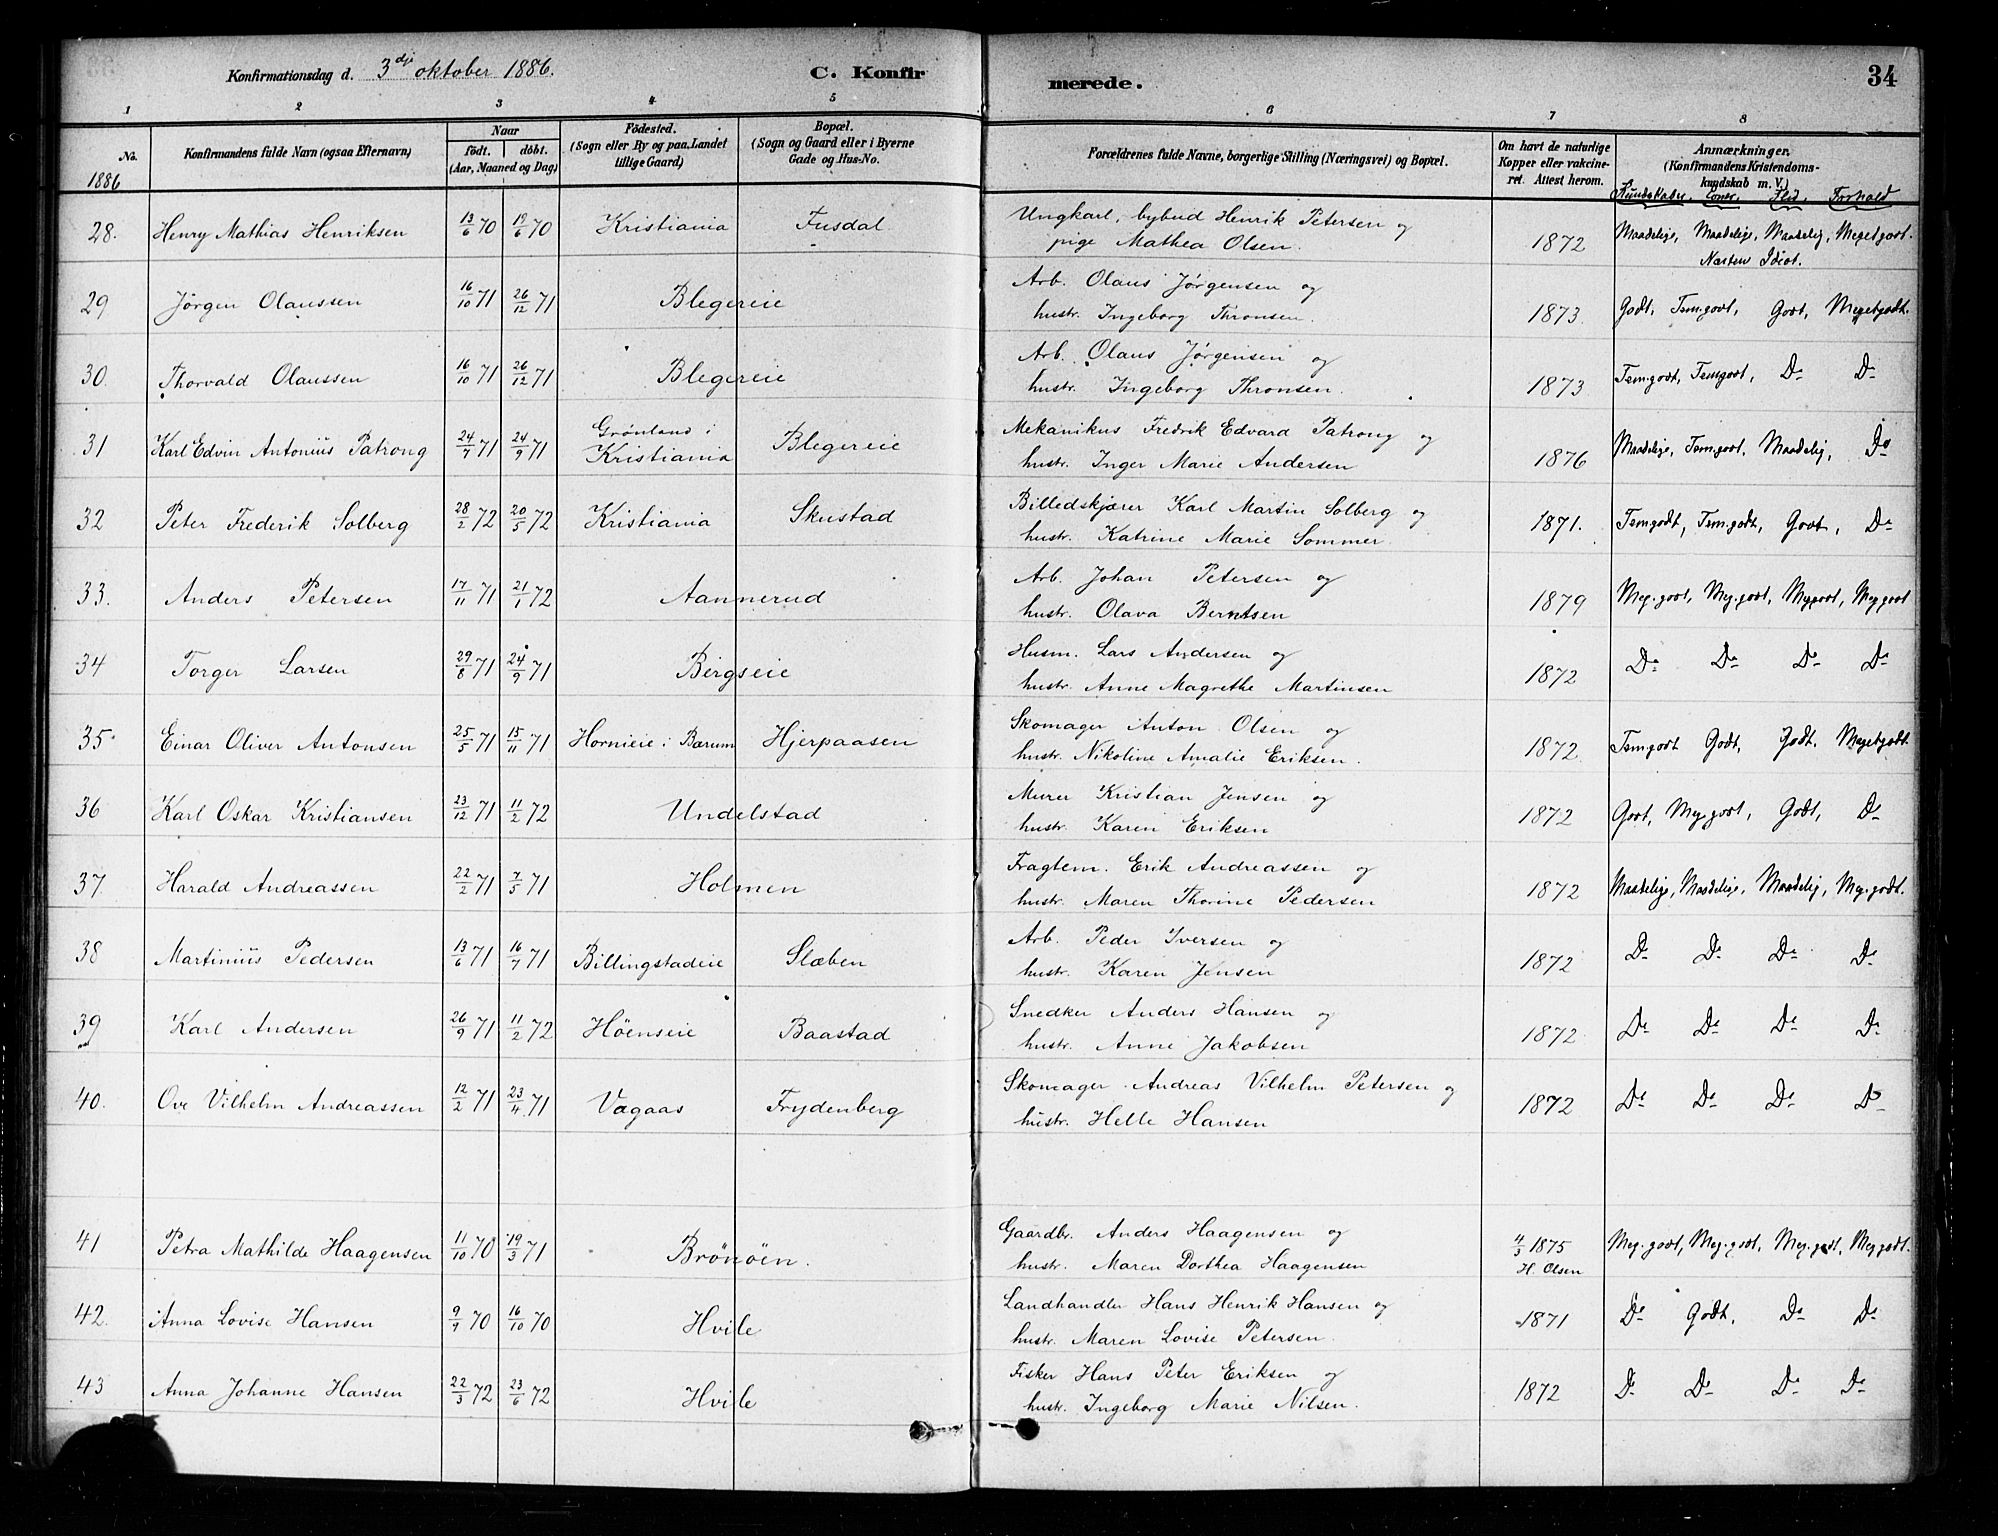 Konfirmationsdag d. 3dje oktober 1886.
C. Konfirmerede.
34
1 2 3 4 5 6 7 8
No.
Konfirmandens fulde Navn (ogsaa Efternavn)
Naar
født. døbt.
(Aar, Maaned og Dag)
Födested.
(Sogn eller By og paa Landet
tillige Gaard)
Bopæl.
(Sogn og Gaard eller i Byerne
Gade og Hus-No.
Forældrenes fulde Navne, borgerlige Stilling (Næringsvei) og Bopæl.
Om havt de naturlige
Kopper eller vakcine-
ret. Attest herom.
Anmærkninger.
(Konfirmandens Kristendoms-
kundskab m. V.)
Flid. Forhold
1886
28. Henry Mathias Henriksen 13/6 70 19/6 70 Kristiania Fusdal Ungkarl, bybud Henrik Petersen og 1872 Maadelige, Maadelige, Maadelig, Megetgodt.
pige Mathea Olsen. Næsten Idiot.
29 Jørgen Olaussen 16/10 71 26/12 71 Blegereie Arb. Olaus Jørgensen og 1873. Godt, Temgodt, Godt, Megetgodt.
hustr. Ingeborg Thronsen.
30. Thorvald Olaussen 16/10 71 26/12 71 Blegereie Arb. Olaus Jørgensen og 1873 Temgodt, Temgodt, Do Do
hustr. Ingeborg Thronsen.
31 Karl Edvin Antonius Patrong 24/7 71 24/9 71 Grönland i Kristiania Blegereie Mekanikus Fredrik Edvard Patrong og 1876 Maadelige, Temgodt, Maadelig, Do
hustr. Inger Marie Andersen
32 Peter Frederik Solberg 28/2 72 20/5 72 Kristiania Skustad Billedskjærer Karl Martin Solberg og 1871. Temgodt, Temgodt, Godt, Do
hustr. Katrine Marie Sommer.
33. Anders Petersen 17/11 71 21/1 72 Aannerud Arb. Johan Petersen og 1879 Meg.godt, Meg.godt, Meggodt, Meggodt
hustr. Olava Berntsen
34 Torger Larsen 29/8 71 24/9 71 Bergseie Husm. Lars Andersen og 1872 Do Do Do Do
hustr. Anne Magrethe Martinsen
35. Einar Oliver Antonsen 25/5 71 15/11 71 Hornieie i Bærum Hjerpaasen Skomager Anton Olsen og 1872 Temgodt Godt, Godt, Megetgodt
hustr. Nikoline Amalie Eriksen.
36 Karl Oskar Kristiansen 23/12 71 11/2 72 Undelstad Murer Kristian Jensen og 1872 Godt, Meg.godt, Godt, Do
hustr. Karen Eriksen
37. Harald Andreassen 22/2 71 7/5 71 Holmen Fragtem. Erik Andreassen og 1872 Maadelige, Maadelige, Maadelig, Meg.godt.
hustr. Maren Thorine Pedersen
38 Martinius Pedersen 13/6 71 16/7 71 Billingstadeie Slæben Arb. Peder Iversen og 1872 Do Do Do Do
hustr. Karen Jensen
39 Karl Andersen 26/9 71 11/2 72 Höenseie Baastad Snedker Anders Hansen og 1872 Do Do Do Do
hustr. Anne Jakobsen
40. Ove Vilhelm Andreassen 12/2 71 23/4 71 Vagaas Frydenberg Skomager Andreas Vilhelm Petersen og 1872 Do Do Do Do
hustr. Helle Hansen
41 Petra Mathilde Haagensen 11/10 70 19/3 71 Brönöen. Gaardbr. Anders Haagensen og 4/3 1875 Meg.godt, Meg.godt, Meg.godt, Meggodt.
hustr. Maren Dorthea Haagensen H. Olsen
42. Anna Lovise Hansen 9/9 70 16/10 70 Hvile Landhandler Hans Henrik Hansen og 1871 Do Godt, Do Do
hustr. Maren Lovise Petersen.
43 Anna Johanne Hansen 22/3 72 23/6 72 Hvile Fisker Hans Peter Eriksen og 1872 Do Do Do Do
hustr. Ingeborg Marie Nilsen.